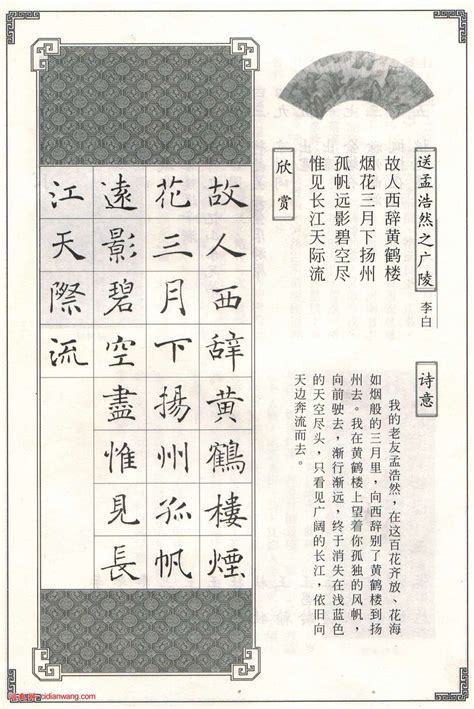 送孟浩然之广陵
李白
故人西辞黄鹤楼
烟花三月下扬州
孤帆远影碧空尽
惟见长江天际流
欣赏
诗意
我的老友孟浩然，在这百花齐放、花海
如烟般的三月里，向西辞别了黄鹤楼到扬
州去。我在黄鹤楼上望着你孤独的风帆，
向前驶去，渐行渐远，终于消失在浅蓝色
的天空尽头，只看见广阔的长江，依旧向
天边奔流而去。
故人西辞黄鶴樓煙
花三月下揚州孤帆
遠影碧空盡惟見長
江天際流
cidianwang.com